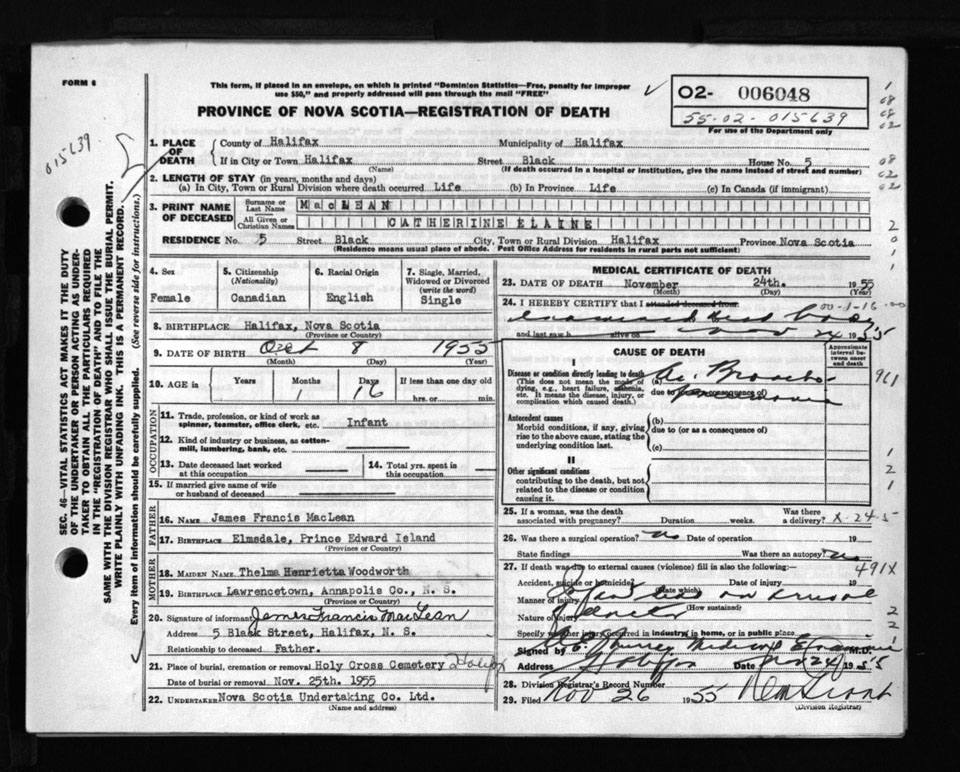 FORM 6
This form, if placed in an envelope, on which is printed "Dominion Statistics—Free, penalty for improper
use $50," and properly addressed will pass through the mail "FREE"
PROVINCE OF NOVA SCOTIA—REGISTRATION OF DEATH
O2- 006048
55-02-015639
For use of the Department only
015639
SEC. 46—VITAL STATISTICS ACT MAKES IT THE DUTY
OF THE UNDERTAKER OR PERSON ACTING AS UNDER-
TAKER TO OBTAIN ALL THE PARTICULARS REQUIRED
IN THE "REGISTRATION OF DEATH" AND TO FILE THE
SAME WITH THE DIVISION REGISTRAR WHO SHALL ISSUE THE BURIAL PERMIT.
WRITE PLAINLY WITH UNFADING INK. THIS IS A PERMANENT RECORD.
Every item of information should be carefully supplied. (See reverse side for instructions.)
1. PLACE OF DEATH
County of Halifax Municipality of Halifax
If in City or Town Halifax Street Black House No. 5
(Name) (If death occurred in a hospital or institution, give the name instead of street and number)
2. LENGTH OF STAY (in years, months and days)
(a) In City, Town or Rural Division where death occurred Life (b) In Province Life (c) In Canada (if immigrant)
3. PRINT NAME OF DECEASED
Surname or Last Name MacLEAN
All Given or Christian Names CATHERINE ELAINE
RESIDENCE No. 5 Street Black City, Town or Rural Division Halifax Province Nova Scotia
(Residence means usual place of abode. Post Office Address for residents in rural parts not sufficient)
4. Sex
Female
5. Citizenship (Nationality)
Canadian
6. Racial Origin
English
7. Single, Married, Widowed or Divorced (write the word)
Single
8. BIRTHPLACE Halifax, Nova Scotia
(Province or Country)
9. DATE OF BIRTH Oct 8 1955
(Month) (Day) (Year)
10. AGE in Years Months 1 Days 16 If less than one day old
hrs. or min.
OCCUPATION
11. Trade, profession, or kind of work as
spinner, teamster, office clerk, etc. Infant
12. Kind of industry or business, as cotton-
mill, lumbering, bank, etc.
13. Date deceased last worked
at this occupation
14. Total yrs. spent in
this occupation
15. If married give name of wife
or husband of deceased
FATHER
16. NAME James Francis MacLean
17. BIRTHPLACE Elmsdale, Prince Edward Island
(Province or Country)
MOTHER
18. MAIDEN NAME Thelma Henrietta Woodworth
19. BIRTHPLACE Lawrencetown, Annapolis Co., N. S.
(Province or Country)
20. Signature of informant James Francis MacLean
Address 5 Black Street, Halifax, N. S.
Relationship to deceased Father.
21. Place of burial, cremation or removal Holy Cross Cemetery Halifax
Date of burial or removal Nov. 25th. 1955
22. UNDERTAKER Nova Scotia Undertaking Co. Ltd.
(Name and address)
MEDICAL CERTIFICATE OF DEATH
23. DATE OF DEATH November 24th. 1955
(Month) (Day) (Year)
24. I HEREBY CERTIFY that I attended deceased from
00-1-16
and last saw h alive on Nov 24 1955
CAUSE OF DEATH
Approximate interval between onset and death
I
Disease or condition directly leading to death
(This does not mean the mode of
dying, e.g., heart failure, asthenia,
etc. It means the disease, injury, or
complication which caused death.)
(a) Ac. Broncho
due to (or as a consequence of) pneumonia
Antecedent causes
Morbid conditions, if any, giving
rise to the above cause, stating the
underlying condition last.
(b)
due to (or as a consequence of)
(c)
II
Other significant conditions
contributing to the death, but not
related to the disease or condition
causing it.
25. If a woman, was the death
associated with pregnancy? Duration weeks. Was there
a delivery?
X-24-5
26. Was there a surgical operation? No Date of operation 19
State findings Was there an autopsy? No
27. If death was due to external causes (violence) fill in also the following: 491X
Accident, suicide or homicide? (State which) Date of injury 19
Manner of injury (How sustained)
Nature of injury
Specify whether injury occurred in industry, in home, or in public place
Signed Medical Examiner M.D.
Address Halifax Date Nov 24 1955
28. Division Registrar's Record Number
29. Filed Nov 26 1955
(Division Registrar)